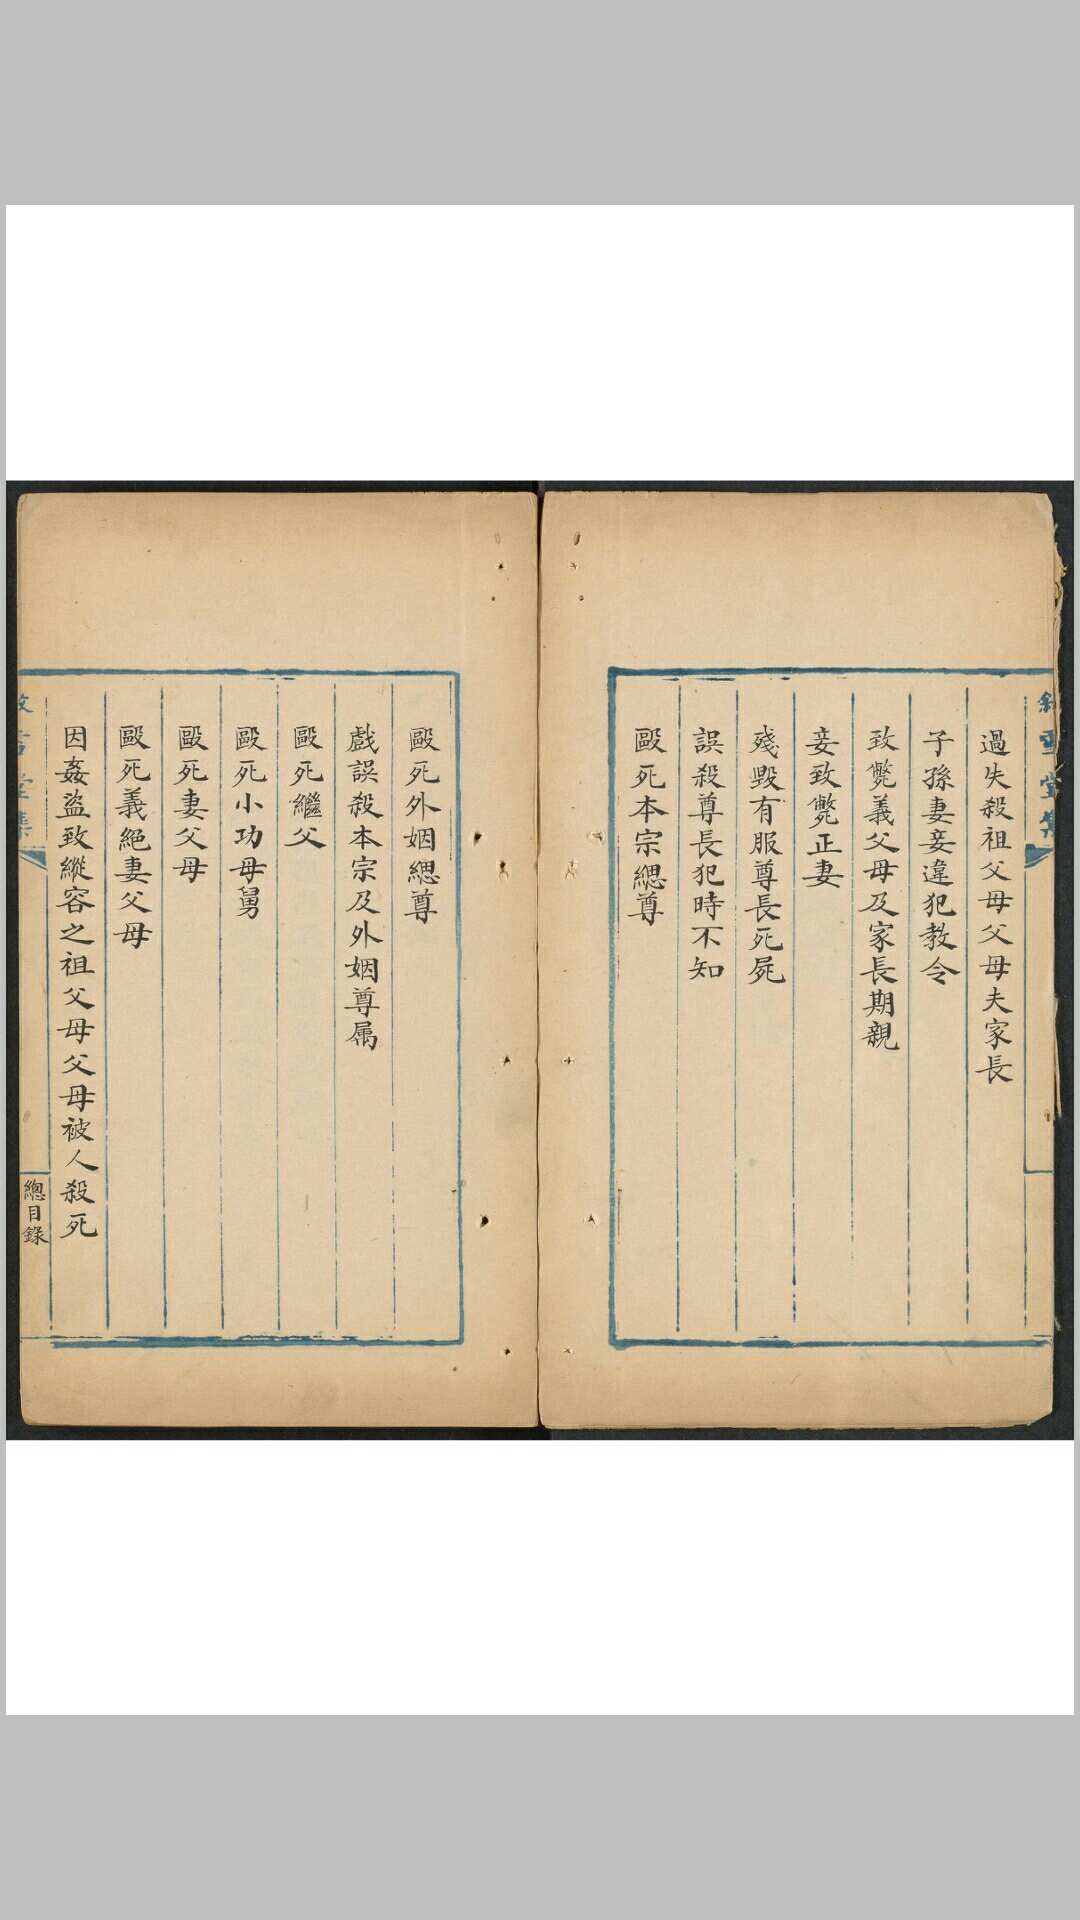 過失殺祖父母父母夫家長
子孫妻妾違犯教令
致斃義父母及家長期親
妾致斃正妻
殘毀有服尊長死屍
誤殺尊長犯時不知
毆死本宗緦尊
毆死外姻緦尊
戲誤殺本宗及外姻尊属
毆死繼父
毆死小功母舅
毆死妻父母
毆死義絕妻父母
因姦盜致縱容之祖父母父母被人殺死
總目錄